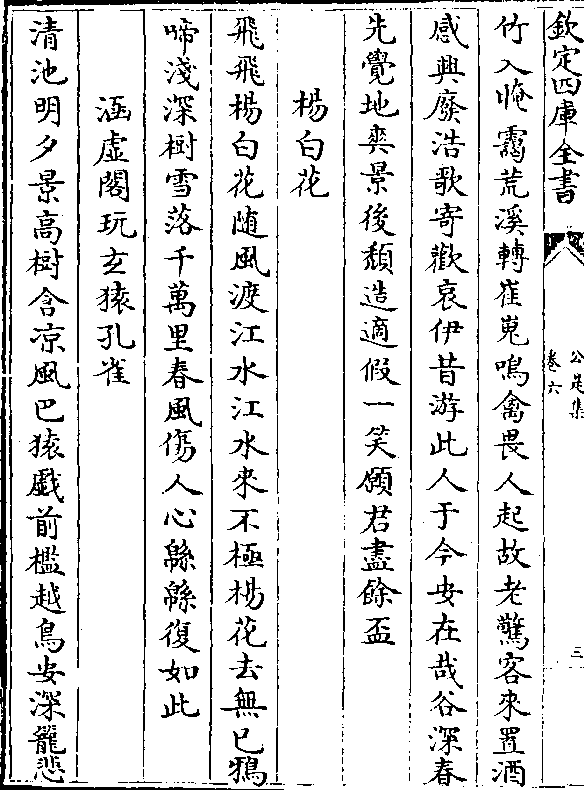 欽定四庫全書
公是集
卷六
三
竹入晻靄荒溪轉崔嵬鳴禽畏人起故老驚客來置酒
感興廢浩歌寄歡哀伊昔游此人于今安在哉谷深春
先覺地爽景後頹造適假一笑願君盡餘盃
楊白花
飛飛楊白花随風渡江水江水來不極楊花去無已鵶
啼淺深樹雪落千萬里春風傷人心緜緜復如此
涵虛閣玩玄猿孔雀
清池明夕景高樹含凉風巴猿戱前檻越鳥安深籠悲